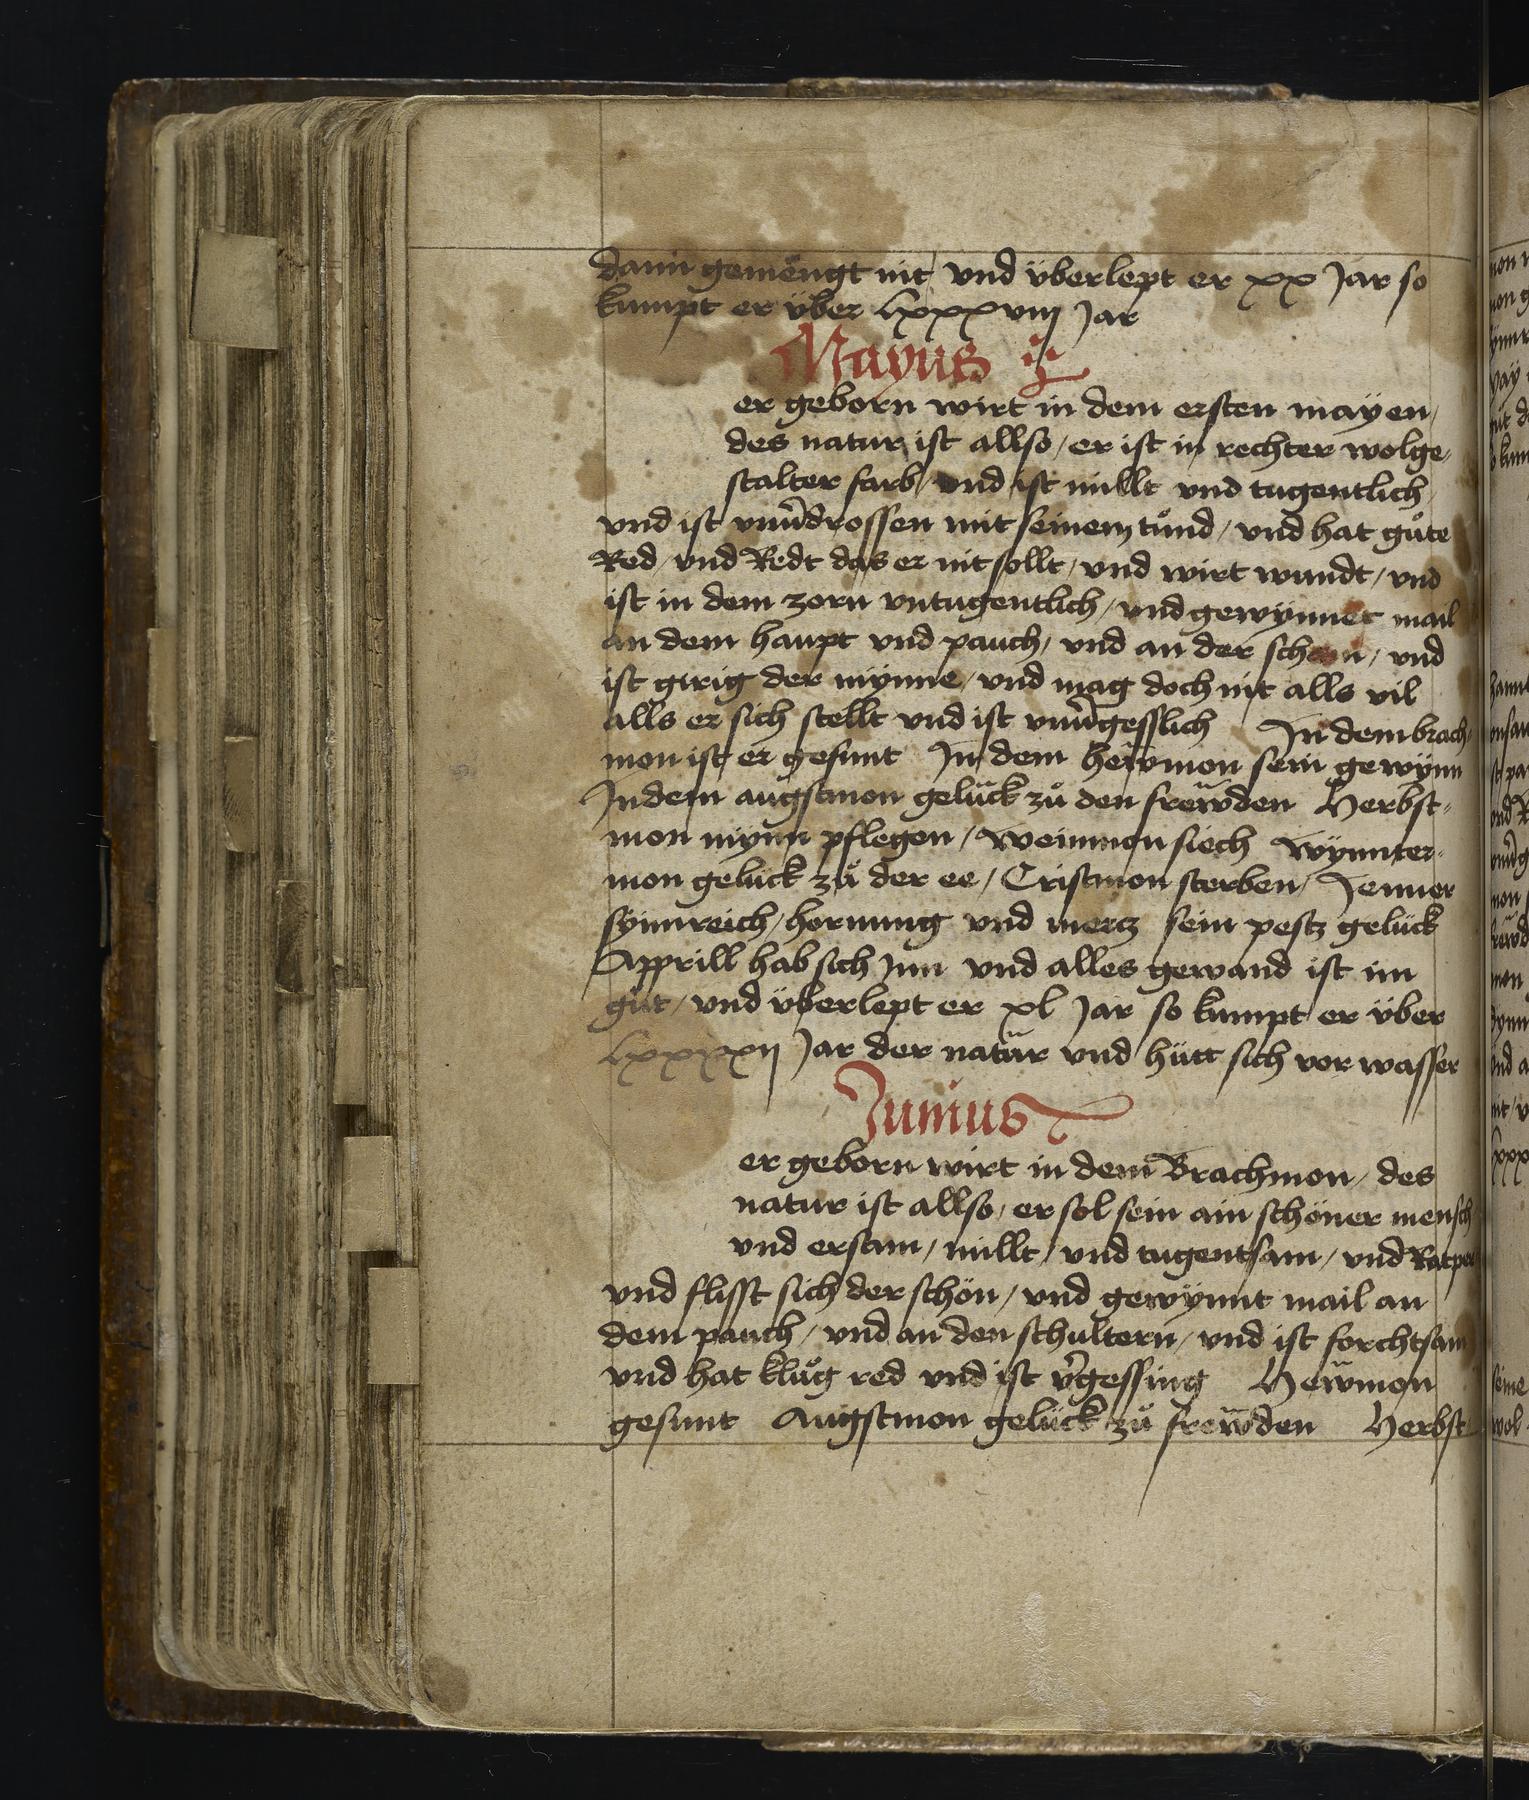 dann gemengt nit vnd überlept er xx Jar so
kumpt er über lxxxviij Jar
Mayus
er geborn wirt in dem ersten mayen /
des natur ist allso / er ist in rechter wolge-
stalter farb / vnd ist millt vnd tugentlich
vnd ist vnuerdrossen mit seinem tůnd / vnd hat gůte
Red / vnd Redt das er nit sollt / vnd wirt wundt / vnd
ist in dem zorn vntugentlich / vnd gewÿnnet mail
an dem haupt vnd pauch / vnd an der / vnd
ist girig der mÿnne / vnd mag doch nit alls vil
alls er sich stellt vnd ist vnuergesslich In dem brach-
mon ist er gesunt In dem heẅmon sein gewÿnn
In dem augstmon gelück zů den freẅden Herbst-
mon mÿnn pflegen / Weinmon siech Wÿnnter-
mon gelück zů der ee / Cristmon sterben / Jenner
sÿnnreich / hornung vnd mertz sein pestz gelück
Apprill hab sich Inn vnd alles gewand ist im
gůt / vnd überlept er xl Jar so kumpt er über
lxxxxij Jar der natur vnd hütt sich vor wasser
Junius
er geborn wirt in dem Brachmon / des
natur ist allso / er sol sein ain schöner mensch
vnd ersam / millt / vnd tugentsam / vnd
vnd flisst sich der schön / vnd gewÿnnt mail an
dem pauch / vnd an den schultern / vnd ist forchtsam
vnd hat klůg red vnd ist v̾gessing Heẅmon
gesunt Augstmon gelück zů freẅden Herbst